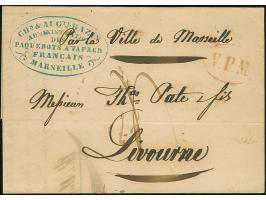 CHs & AUGte BAZIN
ADMINISTRATEURS
DES
PAQUEBOTS A VAPEUR
FRANÇAIS
MARSEILLE
Par la Ville de Marseille
V.P.M.
Messieurs Thos Pate & fils
Livourne